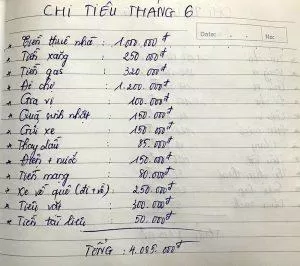 CHI TIÊU THÁNG 6
Date: No:
* Tiền thuê nhà : 1.000.000đ
* Tiền xăng : 250 000đ
* Tiền gas : 320.000đ
* Đi chợ : 1.200.000đ
* Gia vị : 100.000đ
* Quà sinh nhật : 150.000đ
* Gửi xe : 150 000đ
* Thay dầu : 85.000đ
* Điện + nước : 150.000đ
* Tiền mạng : 80.000đ
* Xe về quê (đi+về) : 250 000đ
* Tiêu vặt : 300.000đ
* Tiền tài liệu : 50.000đ
TỔNG : 4.085.000đ